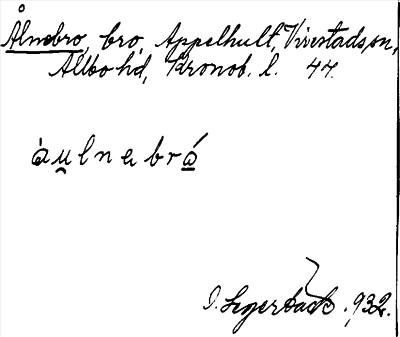 Ålnebro, bro, Appelhult, Virestads sn,
Allbo hd, Kronob. l. 44.
àu̯lnebrǻ
I. Segerbäck. 932.